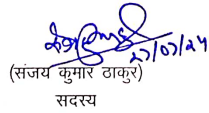 27/07/24
(संजय कुमार ठाकुर)
सदस्य